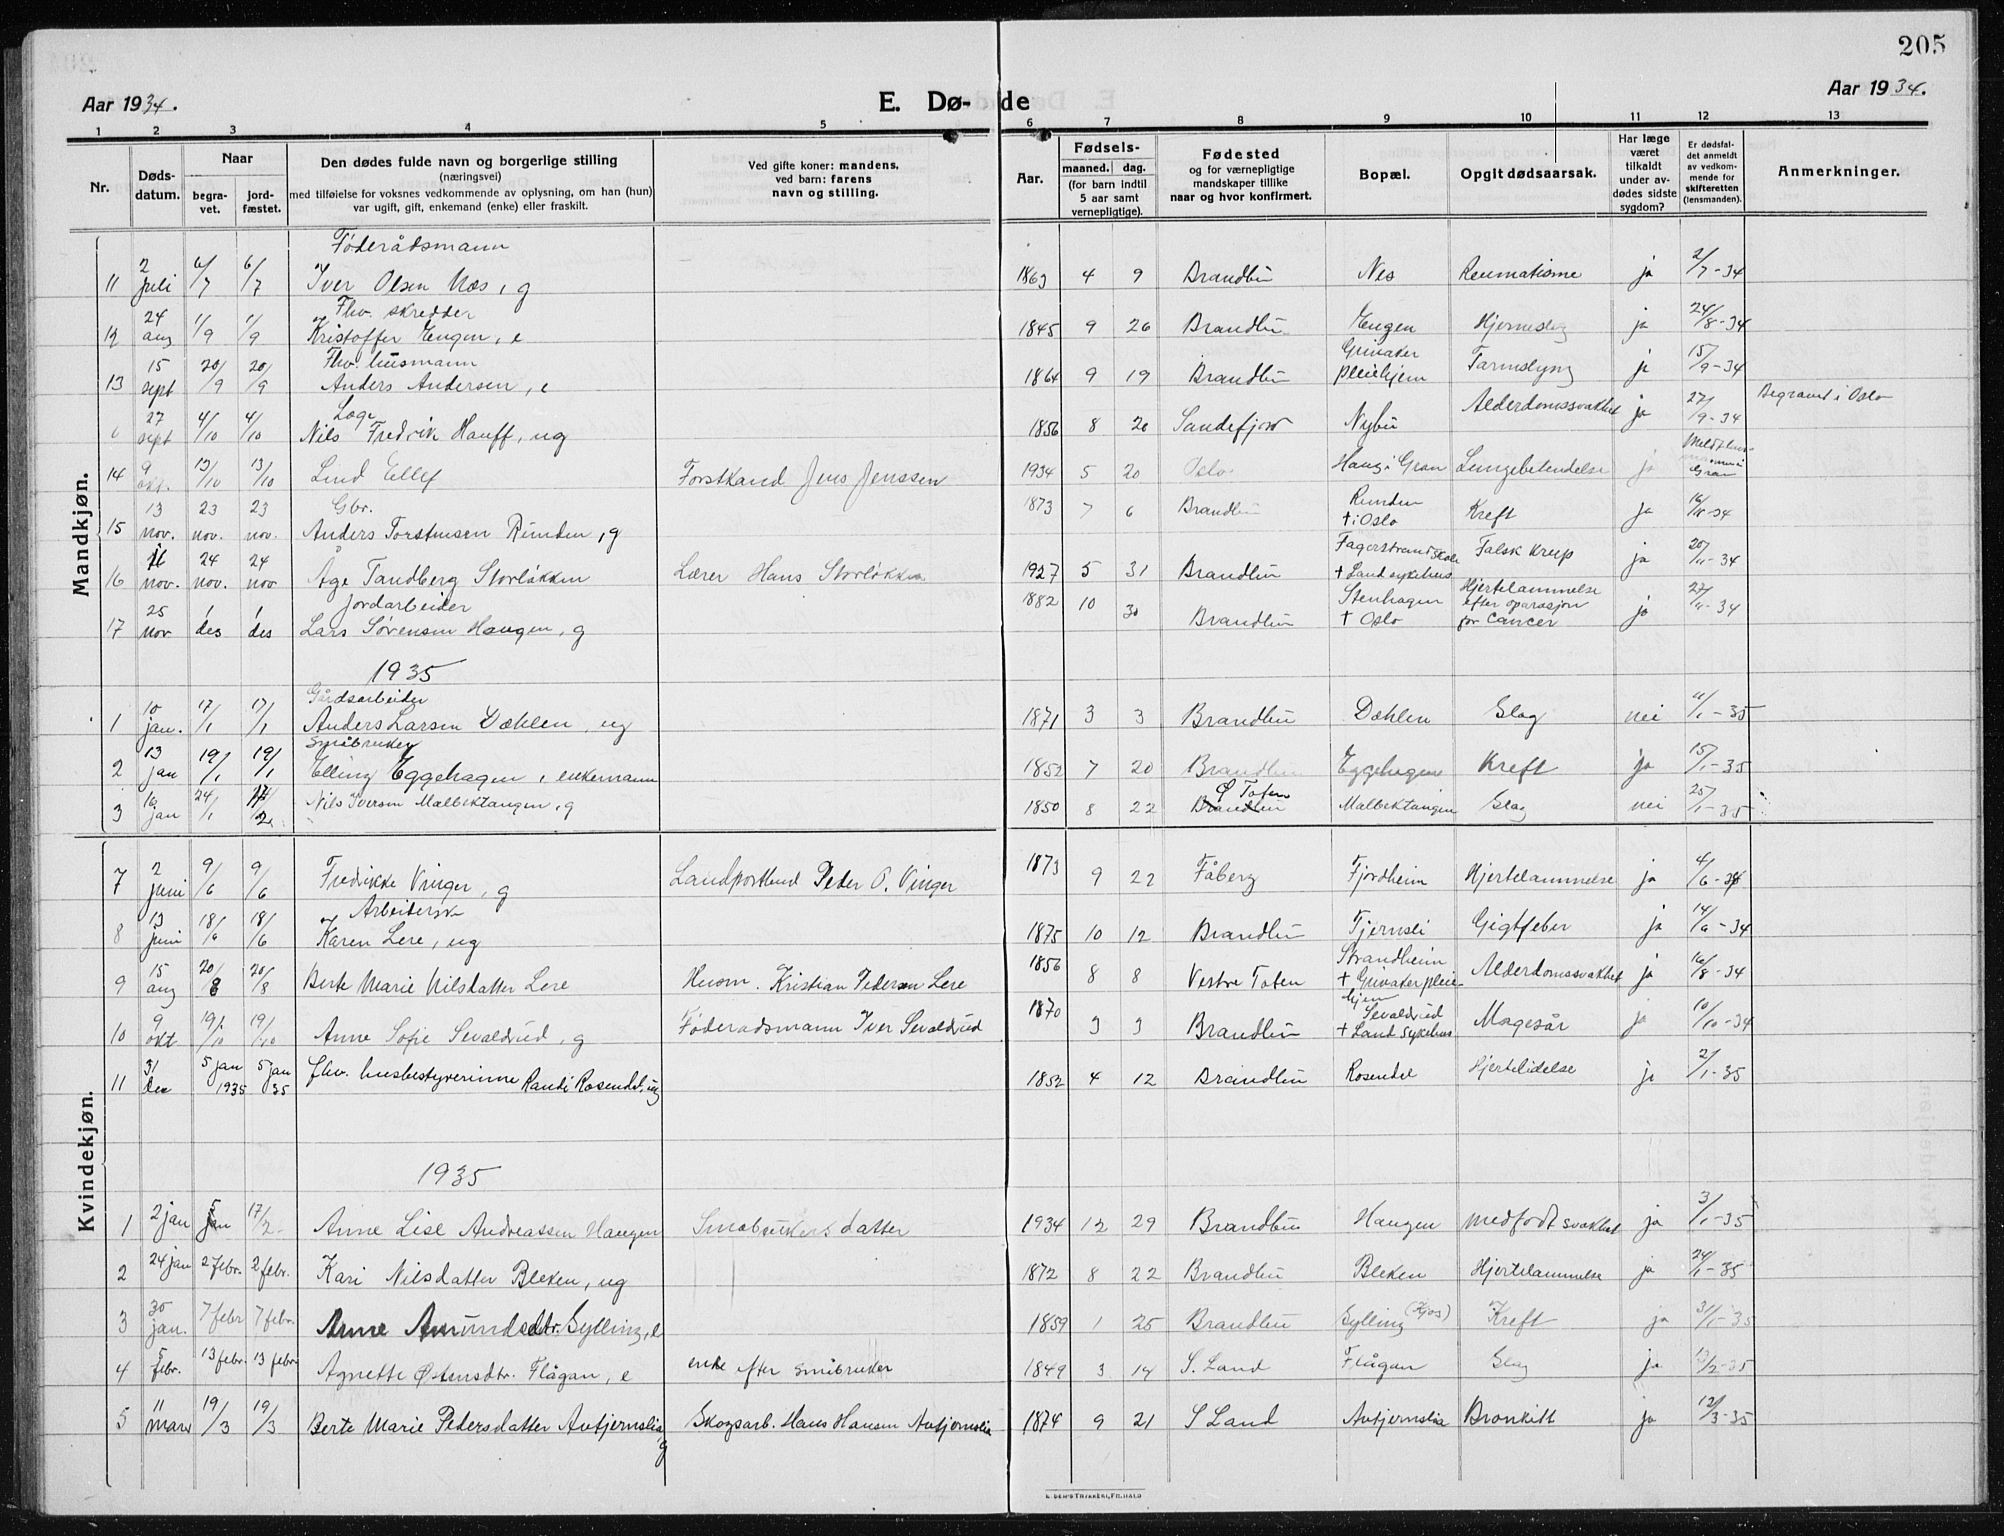 205
Aar 1934.
E. Dø- de
Aar 1934.
1 2 3 4 5 6 7 8 9 10 11 12 13
Nr.
Døds-
datum.
Naar
begra-
vet.
jord-
fæstet.
Den dødes fulde navn og borgerlige stilling
(næringsvei)
med tilføielse for voksnes vedkommende av oplysning, om han (hun)
var ugift, gift, enkemand (enke) eller fraskilt.
Ved gifte koner: mandens,
ved barn: farens
navn og stilling.
Aar.
Fødsels-
maaned. dag.
(for barn indtil
5 aar samt
vernepligtige).
Fødested
og for værnepligtige
mandskaper tillike
naar og hvor konfirmert.
Bopæl.
Opgit dødsaarsak.
Har læge
været
tilkaldt
under av-
dødes sidste
sygdom?
Er dødsfal-
det anmeldt
av vedkom-
mende for
skifteretten
(lensmanden).
Anmerkninger.
Mandkjøn.
Føderådsmann
11 2 juli 6/7 6/7 Iver Olsen Næs, g 1863 4 9 Brandbu Nes Reumatisme ja 2/7-34
Fhv. skredder
12 24 aug 1/9 1/9 Kristoffer Engen, e 1845 9 26 Brandbu Engen Hjerneslag ja 24/8-34
Fhv. husmann
13 15 sept 20/9 20/9 Anders Andersen, e 1864 9 19 Brandbu Grinaker pleiehjem Tarmslyng ja 15/9-34
Læge
27 sept 4/10 4/10 Nils Fredrik Hauff, ug 1856 8 20 Sandefjord Nybu Alderdomssvakhet ja 27/9-34 Begravet i Oslo
14 9 okt. 13/10 13/10 Lind Ellef Forstkand Jens Jenssen 1934 5 20 Oslo Haug i Gran Lungebetendelse ja Gran
Gbr.
15 13 nov. 23 nov. 23 nov. Anders Torstensen Runden, g 1873 7 6 Brandbu Runden + i Oslo Kreft ja 16/11-34
16 nov. 24 nov. 24 nov Åge Tandberg Storløkken Lærer Hans Storløkken 1927 5 31 Brandbu Fagerstrand skole + Land sykehus Falsk krup ja 20/11-34
Jordarbeider
17 25 nov 1 des 1 des Lars Sørensen Haugen, g 1882 10 30 Brandbu Stenhagen + Oslo Hjertelammelse efter oparasjon for cancer ja 27/11-34
1935
Gårdsarbeider
1 10 jan. 17/1 17/1 Anders Larsen Dæhlen, ug 1871 3 3 Brandbu Dæhlen Slag nei 11/1-35
Småbruker
2 13 jan 19/1 19/1 Elling Eggehagen, enkemann 1852 7 20 Brandbu Eggehagen Kreft ja 15/1-35
3 16 jan 24/1 17/2 Nils Iversen Mælbektangen, g 1850 8 22 Ø Toten Brandbu Malbektangen Slag nei 25/1-35
Kvindekjøn.
7 2 juni 9/6 9/6 Fredrikke Vinger, g Landpostbud Peder O. Vinger 1873 9 22 Fåberg Fjordheim Hjertelammelse ja 4/6-34
Arbeiderske
8 13 juni 18/6 18/6 Karen Lere, ug 1875 10 12 Brandbu Tjernsli Gigtfeber ja 14/6-34
9 15 aug 20/8 20/8 Berte Marie Nilsdatter Lere Husm. Kristian Pedersen Lere 1856 8 8 Vestre Toten Strandheim + Grinaker pleiehjem Alderdomssvakhet ja 16/8-34
10 9 okt 19/10 19/10 Anne Sofie Sevaldrud, g Føderadsmann Iver Sevaldrud 1870 3 3 Brandbu Sevaldrud + Land sykehus Magesår ja 10/10-34
11 31 des 5 jan 1935 5 jan 35 fhv. husbestyrerinne Randi Rosendal, ug 1852 4 12 Brandbu Rosendal Hjertelidelse ja 2/1-35
1935
1 2 jan 5 jan 17/2 Anne Lise Andreassen Haugen Småbrukers datter 1934 12 29 Brandbu Haugen medfødt svakhet ja 3/1-35
2 24 jan 2 febr. 2 febr. Kari Nilsdatter Bleken, ug 1872 8 22 Brandbu Bleken Hjertelammelse ja 24/1-35
3 30 jan. 7 febr 7 febr. Anne Amundsdtr. Gylling, e 1859 1 25 Brandbu Gylling (Kjos) Kreft ja 31/1-35
4 5 febr. 13 febr. 13 febr. Agnette Østensdtr. Flågan, e enke efter småbruker 1849 3 14 S. Land Flågan Slag ja 13/2-35
5 11 mars 19/3 19/3 Berte Marie Pedersdatter Avtjernslia, g Skogsarb. Hans Hansen Avtjernslia 1874 9 21 S Land Avtjernslia Bronkitt ja 12/3-35